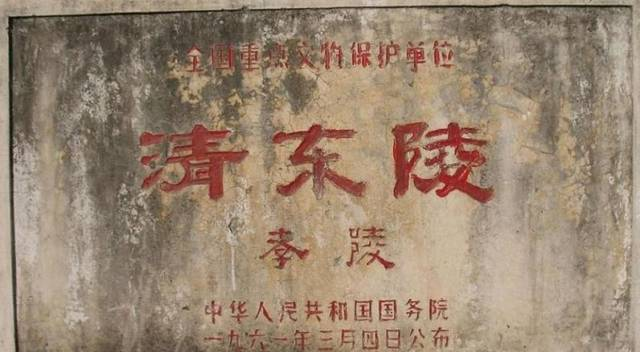 全国重点文物保护单位
清东陵
孝陵
中华人民共和国国务院
一九六一年三月四日公布